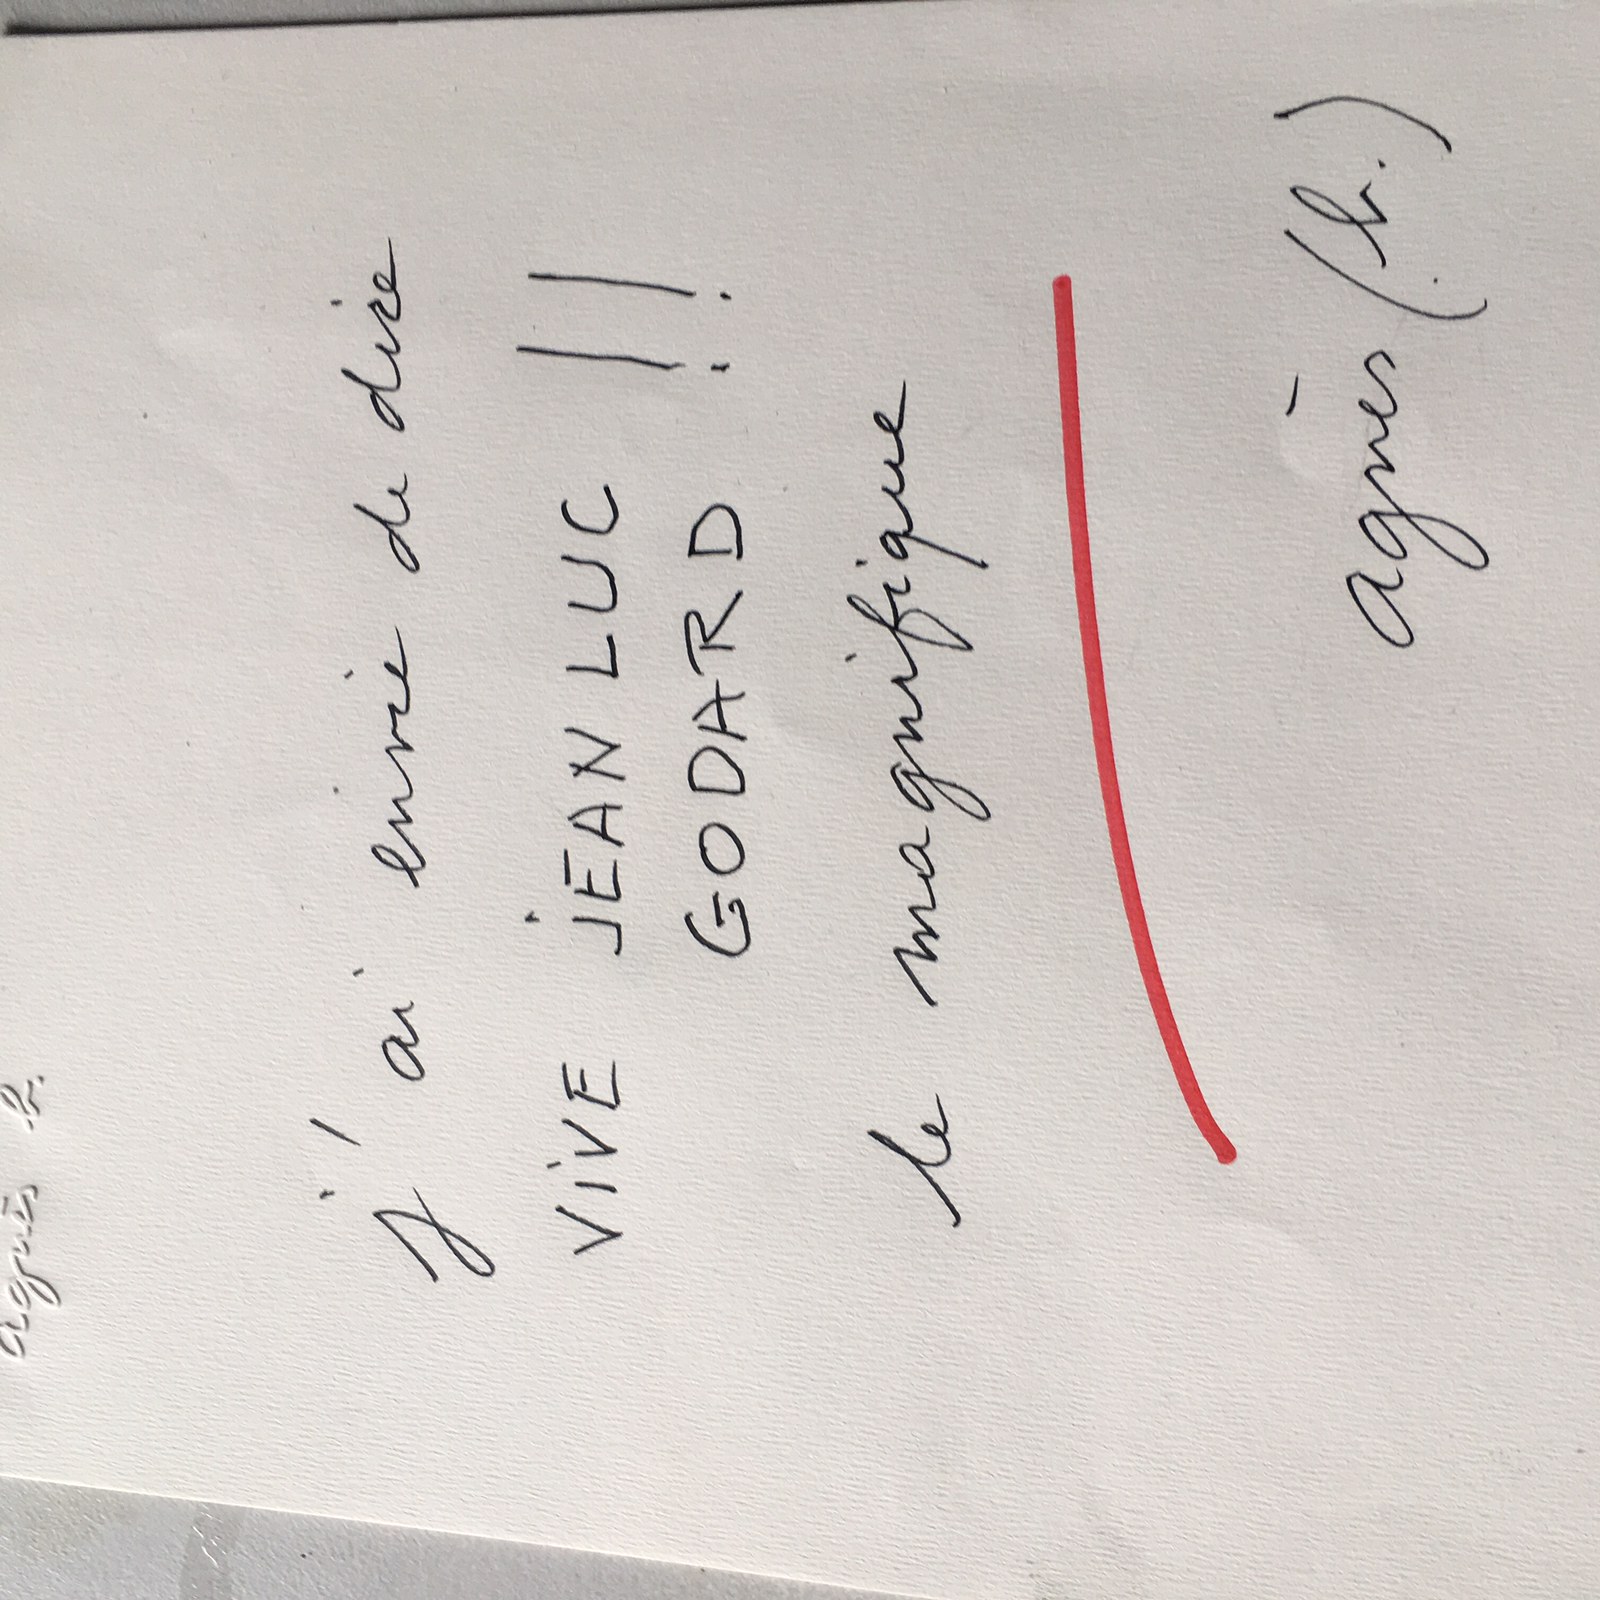 agnès b.
j'ai envie de dire
ViVE jEAN LUC
GODARD !!
le magnifique
agnès (b.)